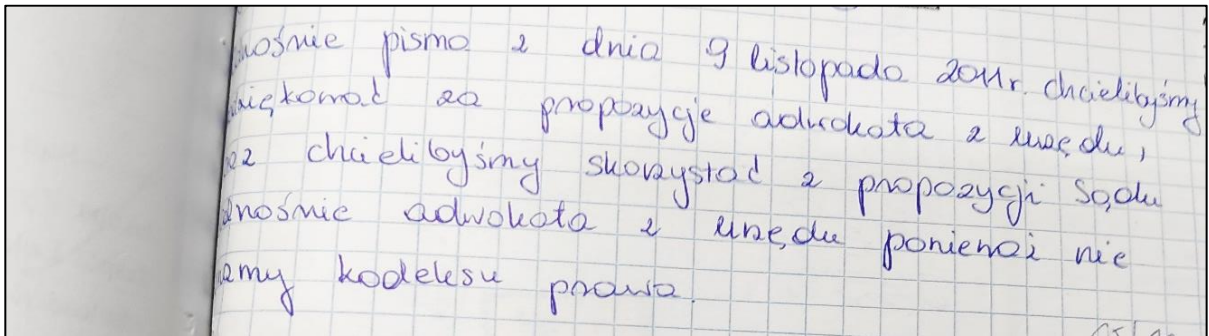 nośnie pismo z dnia 9 listopada 2011r. chcielibyśmy
iękować za propozycje adwokata z urzędu,
az chcielibyśmy skorzystać z propozycji Sądu
nośnie adwokata z urzędu ponieważ nie
amy kodeksu prawa.